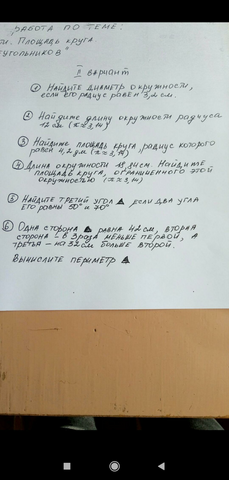 РАБОТА ПО ТЕМЕ:
Площадь круга
II вариант
① Найдите диаметр окружности,
если его радиус равен 3,2 см.
② Найдите длину окружности радиуса
③ Найдите площадь круга, радиус которого
равен
④ Длина окружности Найдите
площадь круга, ограниченного этой
окружностью (π≈3,14)
⑤ Найдите третий угол ▲, если два угла
его равны 50° и 70°
⑥ Одна сторона ▲ равна 42 см, вторая
сторона - в 3 раза меньше первой, а
третья - на 32 см больше второй.
Вычислите периметр ▲